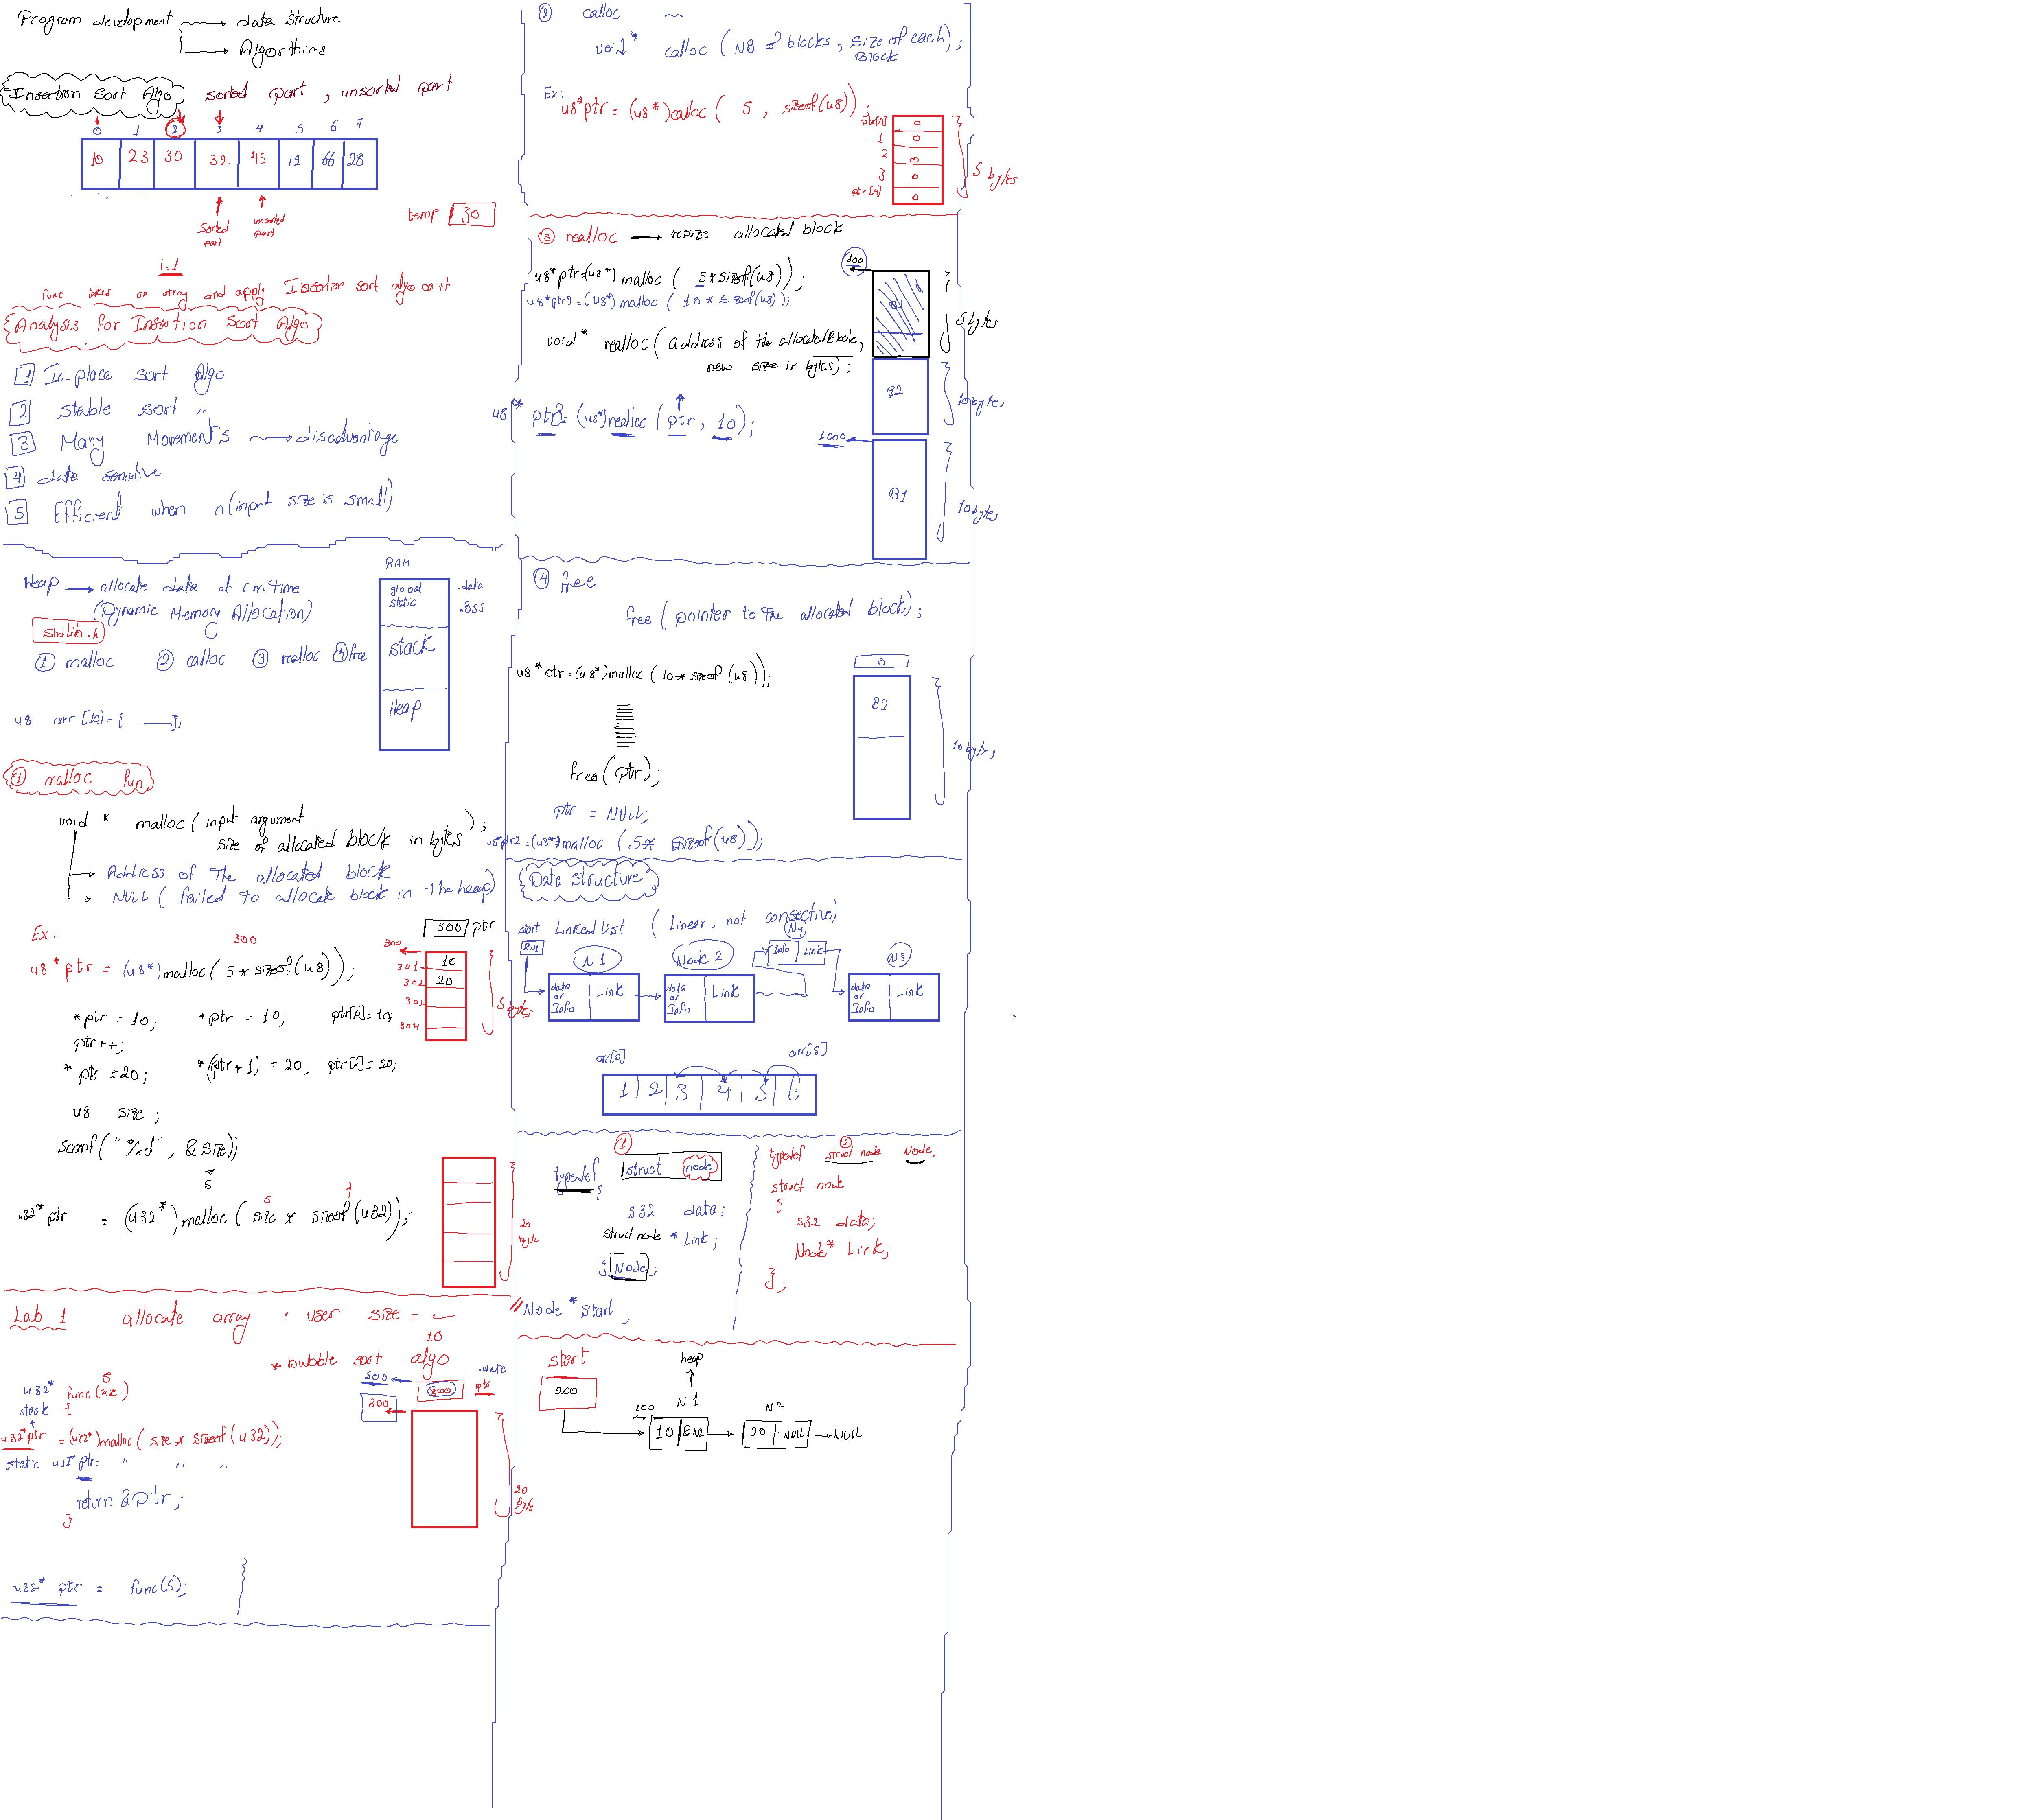 Program development → data structure
→ Algorthims
Insertion Sort Algo sorted part , unsorted part
0 1 2 3 4 5 6 7
10 23 30 32 45 12 66 28
sorted part
unsorted part
temp 30
i=1
func takes an array and apply Insertion sort algo on it
Analysis for Insertion Sort Algo
1 In-place sort Algo
2 stable sort "
3 Many Movements → disadvantage
4 data sensitive
5 Efficient when n(input size is small)
Heap → allocate data at run time
(Dynamic Memory Allocation)
stdlib.h
1 malloc 2 calloc 3 realloc 4 free
u8 arr [10]= { };
RAM
global static
.data
.BSS
stack
Heap
1 malloc fun
void * malloc ( input argument
size of allocated block in bytes ) ;
→ Address of the allocated block
→ NULL ( failed to allocate block in the heap)
300 ptr
Ex:
300
u8 * ptr = (u8*) malloc( 5 * sizeof(u8));
300
301
302
303
304
10
20
5 bytes
*ptr = 10; *ptr = 10; ptr[0]=10;
ptr++;
*ptr =20; *(ptr+1) = 20; ptr[1]=20;
u8 size ;
scanf("%d", &size);
5
5 4
u32* ptr = (u32*) malloc( size * sizeof(u32));
20 byte
Lab 1 allocate array : user size =
10
* bubble sort algo
5
u32* func(siz)
stack {
u32*ptr = (u32*)malloc( size * sizeof(u32));
static u32* ptr= " " "
return &ptr ;
}
500
300
.data
ptr
300
20 byte
u32* ptr = func(5);
2 calloc
void * calloc ( NB of blocks , size of each Block) ;
Ex:
u8*ptr = (u8*)calloc( 5 , sizeof(u8)) ;
ptr[0] 0
1 0
2 0
3 0
ptr[4] 0
5 bytes
3 realloc → resize allocated block
u8*ptr=(u8*) malloc ( 5*sizeof(u8)) ;
u8*ptr2=(u8*) malloc ( 10 * sizeof(u8) );
void * realloc ( address of the allocated Block,
new size in bytes) ;
u8 * ptr3= (u8*)realloc ( ptr , 10 );
300
B1
5 bytes
B2
10 bytes
1000
B1
10 bytes
4 free
free ( pointer to the allocated block) ;
u8 * ptr =(u8*)malloc ( 10 * sizeof (u8));
free(ptr);
ptr = NULL;
u8*ptr2 =(u8*)malloc ( 5* sizeof(u8));
0
B2
10 bytes
Data structure
start Linked list ( Linear, not consective)
N1 Node 2 N4 N3
data or Info Link
data or Info Link
Info Link
data or Info Link
arr[0] arr[5]
1 2 3 4 5 6
1
typedef struct node
{
s32 data;
struct node * Link ;
} Node;
Node * start ;
2
typedef struct node Node;
struct node
{
s32 data;
Node* Link;
} ;
start
200
heap
N1
200
10
N2
20 NULL → NULL